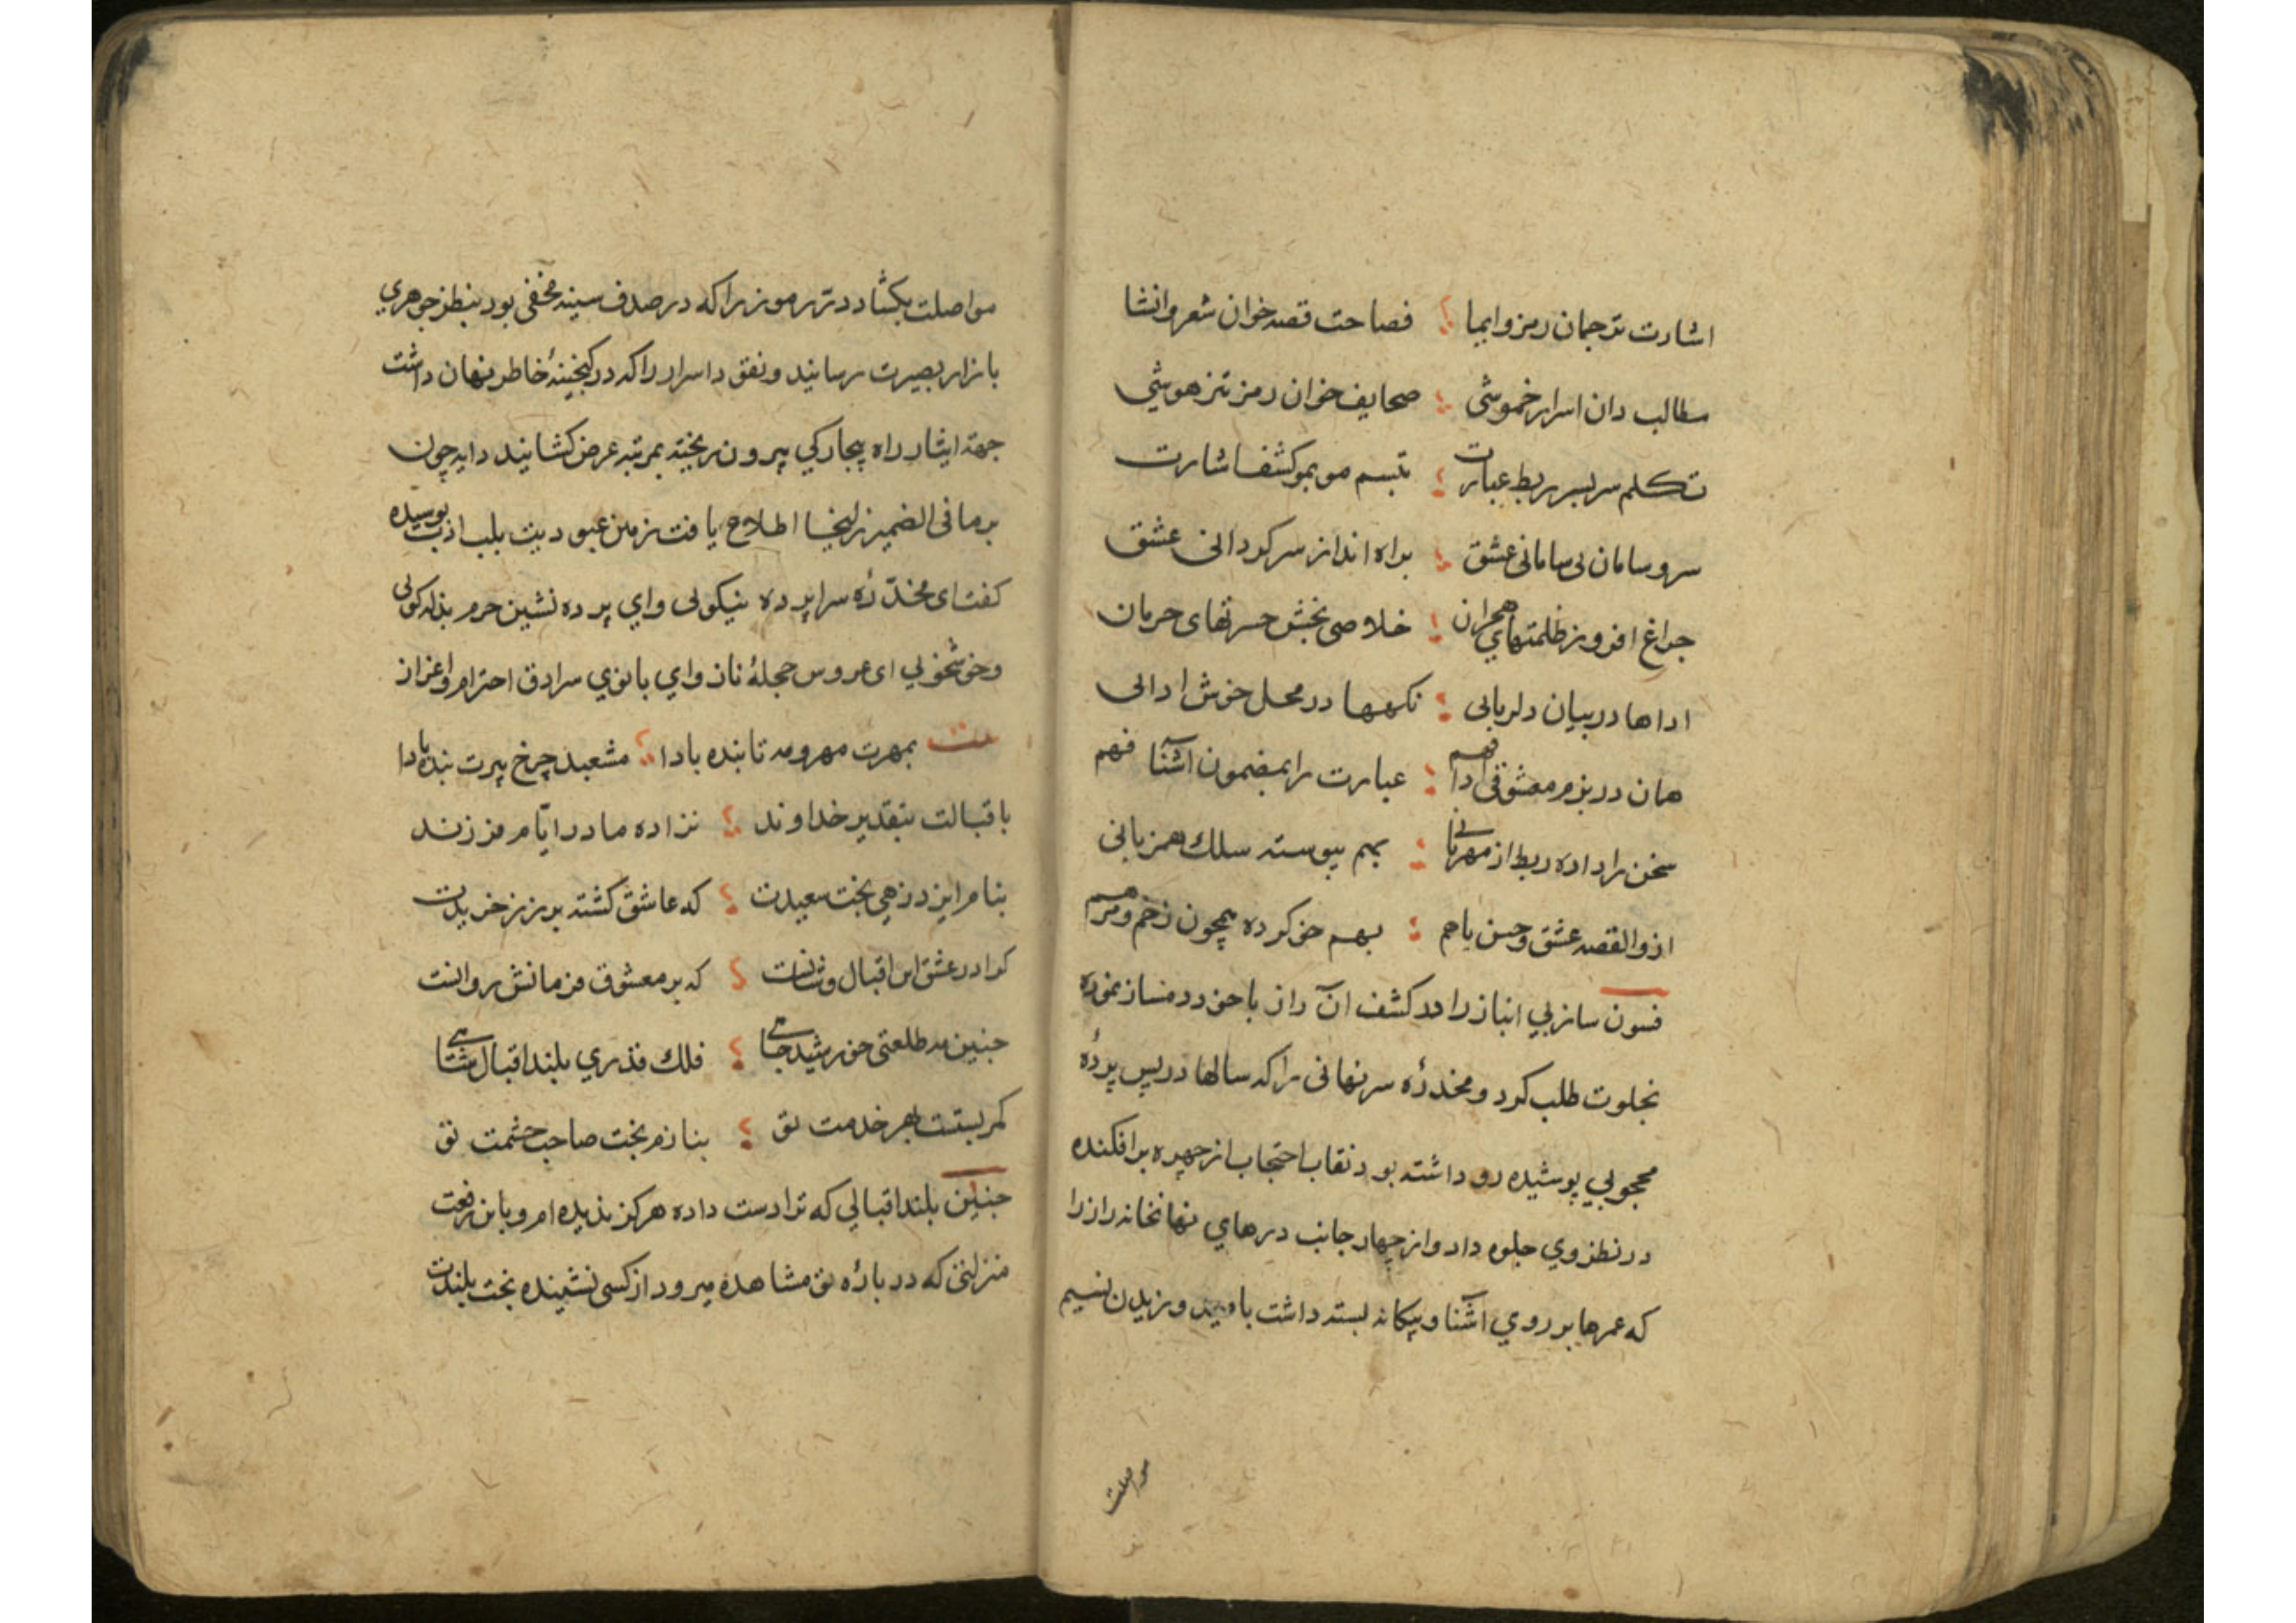 اشارت ترجمان رمز و ایما ؛ فصاحت قصه خوان شعر و انشا
مطالب دان اسرار خموشی ؛ صحایف خوان رمز تیزهوشی
تکلم سربسر ربط عبارت ؛ تبسم موبمو کشف اشارت
سر و سامان بی سامانی عشق ؛ براه انداز سرکردانی عشق
چراغ افروز ظلمتهای هجران ؛ خلاصی بخش حسرتهای حرمان
اداها در بیان دلربایی ؛ نکهها در محل خوش ادائی
همان در بزم معشوقی ادا فهم ؛ عبارت را بمضمون آشنا فهم
سخن را داده ربط از مهربانی ؛ بهم پیوسته سلك همزبانی
القصه عشق و حسن باهم ؛ بهم خو کرده همچون زخم و مرهم
فسون ساز بی انباز را در کشف آن راز با خود دمساز نموده
بخلوت طلب کرد و مخدرهٔ سر نهانی را که سالها در پس پردهٔ
محجوبی پوشیده رو داشته بود نقاب احتجاب از چهره برافکنده
در نظر وی جلوه داد و از چهار جانب درهای نهانخانه راز را
که عمرها بر روی آشنا و بیکانه بسته داشت بامید وزیدن نسیم
مواصلت
مواصلت بکشاد در رموز را که در صدف سینه مخفی بود بنظر جوهری
بازار بصیرت رسانید و نقود اسرار را که در کنجینهٔ خاطر نهان داشت
جهة ایثار راه بیچارکی بیرون ریخته بمرتبه عرض کشانید دایه چون
بر ما فی الضمیر زلیخا اطلاع یافت زمین عبودیت بلب ادب بوسیده
کفت ای مخدّرهٔ سراپرده نیکوئی و ای پرده نشین حرم بذله کوئی
و خوشخوئی ای عروس حجلهٔ ناز و ای بانوی سرادق احترام و اعزاز
بیت بمهرت مهر و مه تابنده بادا ؛ مشعبد چرخ پیرت بنده بادا
باقبالت بتقدیر خداوند ؛ نزاده مادر ایّام فرزند
بنام ایزد زهی بخت سعیدت ؛ که عاشق کشته بر زر خریدت
کرا در عشق این اقبال و شانست ؛ که بر معشوق فرمانش روانست
چنین مه طلعتی خورشید جاهی ؛ فلك قدری بلند اقبال شاهی
کمر بستست بهر خدمت تو ؛ بنازم بخت صاحب حشمت تو
چنین بلند اقبالی که ترا دست داده هرکز ندیده ام و باین رفعت
منزلتی که در بارهٔ تو مشاهده میرود از کسی نشنیده بخت بلندت